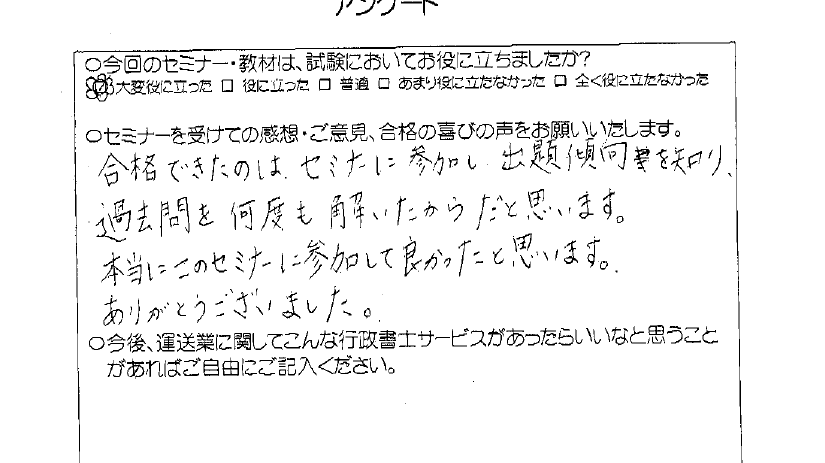 アンケート
○今回のセミナー・教材は、試験においてお役に立ちましたか?
☑大変役に立った □ 役に立った □ 普通 □ あまり役に立たなかった □ 全く役に立たなかった
○セミナーを受けての感想・ご意見、合格の喜びの声をお願いいたします。
合格できたのは、セミナーに参加し、出題傾向等を知り、
過去問を何度も解いたからだと思います。
本当にこのセミナーに参加して良かったと思います。
ありがとうございました。
○今後、運送業に関してこんな行政書士サービスがあったらいいなと思うこと
があればご自由にご記入ください。